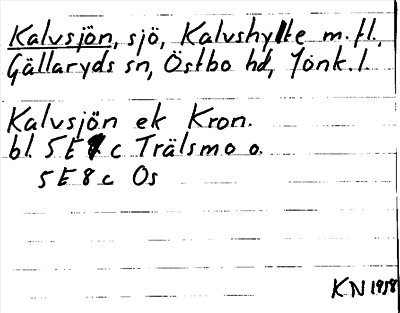 Kalvsjön, sjö, Kalvshylte m.fl.
Gällaryds sn, Östbo hd, Jönk. l.
Kalvsjön ek Kron.
bl. 5E c Trälsmo o.
5E8c Os
KN 1958